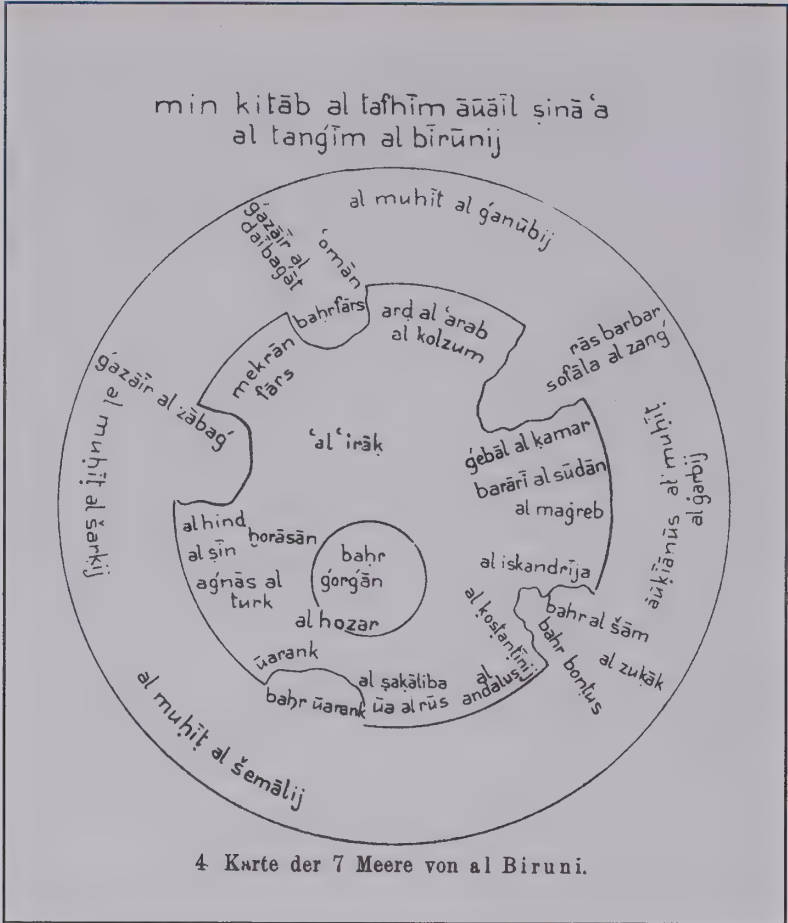 min kitāb al tafhīm āūāīl ṣinā‘a
al tanǵīm al bīrūnij
al muhīt al ǵanūbij
ǵazāīr al
daībaǵāt
‘omān
baḥrfārs
arḍ al ‘arab
al kolzum
rās barbar
sofāla al zanǵ
mekrān
fārs
ǵazāīr al zābaǵ
al muḥīṭ al šarkij
‘al‘irāḳ
ǵebāl al ḳamar
barārī al sūdān
al maġreb
āūḳīānūs al muḥīṭ
al ġarbij
al hind
al ṣīn
aǵnās al
turk
ḫorāsān
baḥr
ǵorǵān
al hozar
al iskandrīja
al ḳosṭanṭīnij
baḥr al šām
baḥr bonṭus
al zuḳāḳ
ūarank
baḥr ūarank
al ṣaḳāliba
ūa al rūs
al
andalus
al muḥīṭ al šemālij
4 Karte der 7 Meere von al Biruni.